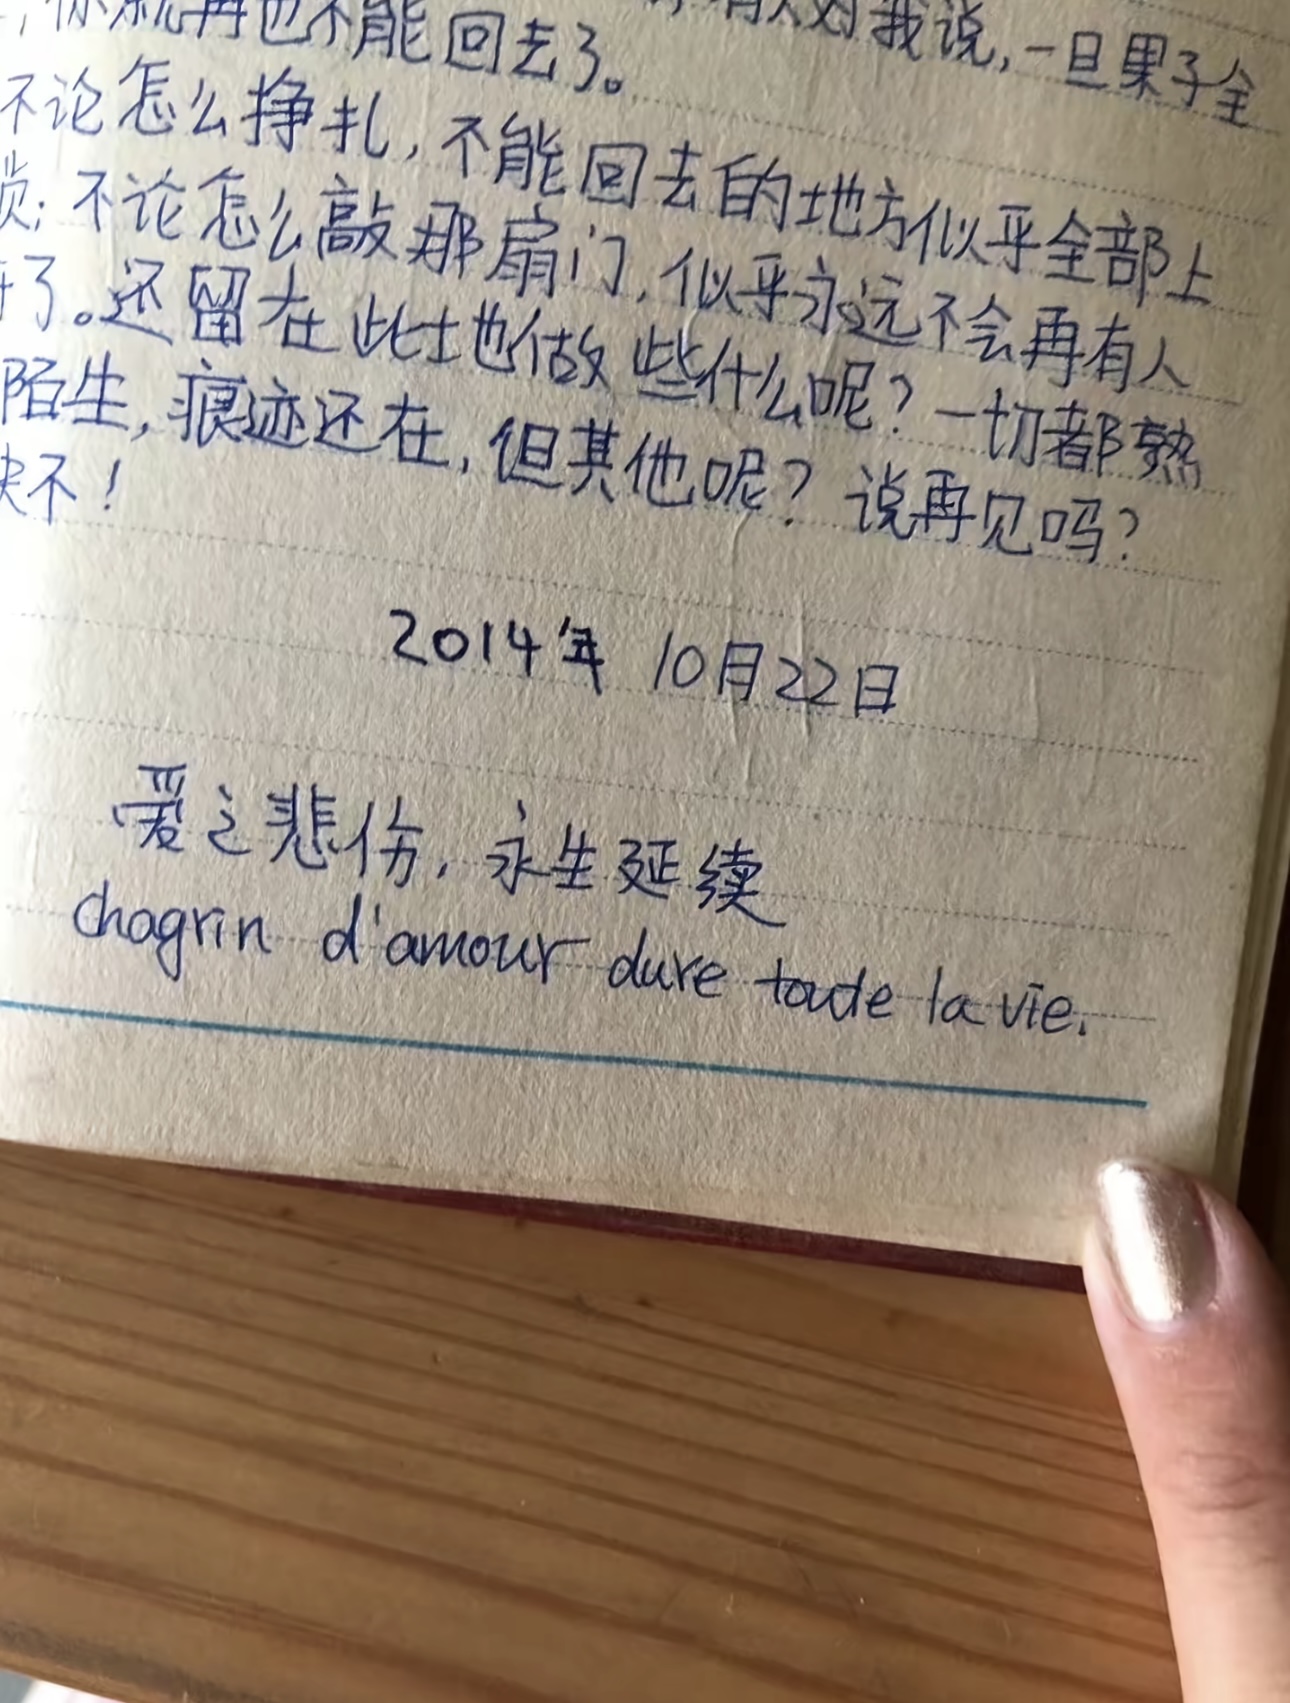 我说,一旦果子全
你就再也不能回去了。
不论怎么挣扎,不能回去的地方似乎全部上
锁;不论怎么敲那扇门,似乎永远不会再有人
了。还留在此地做些什么呢?一切都熟
陌生,痕迹还在,但其他呢?说再见吗?
决不!
2014年 10月22日
爱之悲伤,永生延续
chagrin d'amour dure toute la vie.